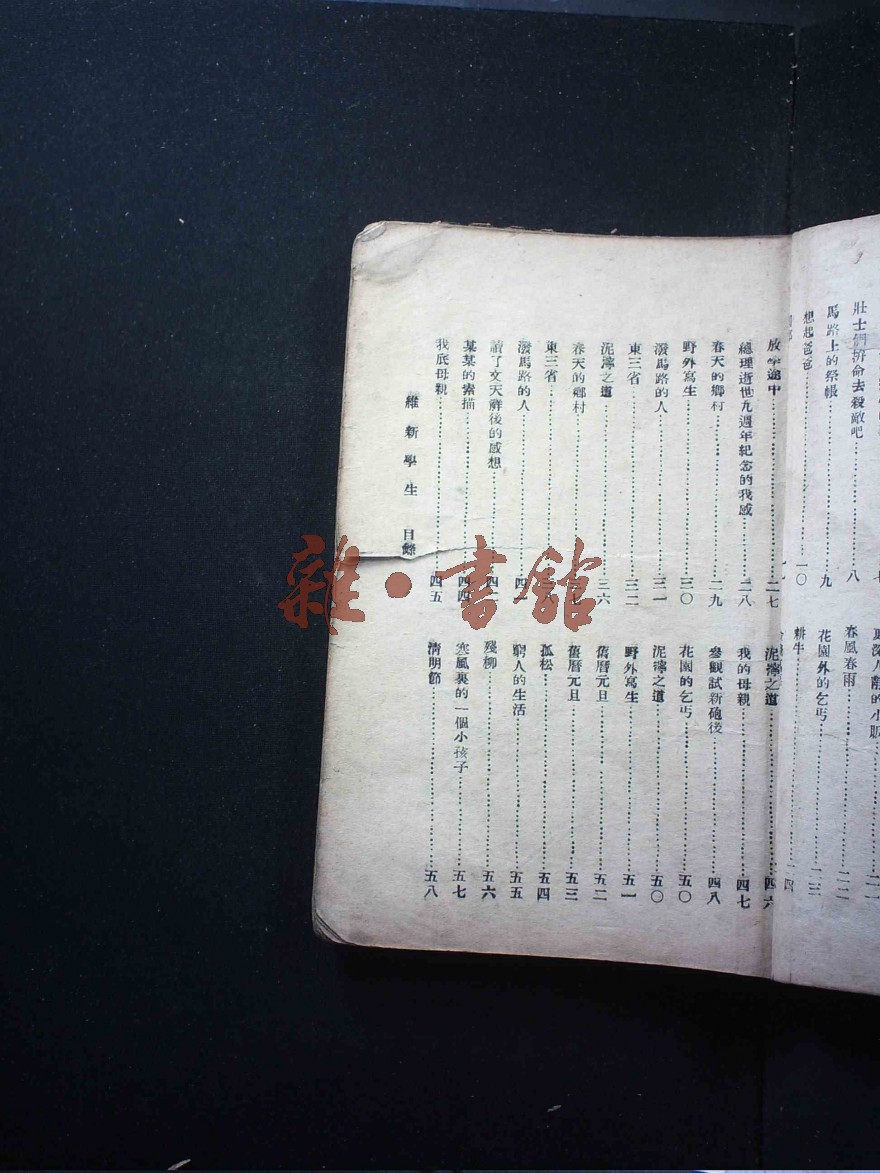 壯士們拚命去殺敵吧……八
馬路上的祭帳……九
想起爸爸……一〇
深人靜的小販……二一
春風春雨……二二
花園外的乞丐……二三
耕牛……二四
放學途中……二七
總理逝世九週年紀念的我感……二八
春天的鄉村……二九
野外寫生……三〇
潑馬路的人……三一
東三省……三二
泥濘之道……三六
春天的鄉村……
東三省……
潑馬路的人……四一
讀了文天祥後的感想……四二
某某的素描……四四
我底母親……四五
泥濘之道……四六
我的母親……四七
參觀試新砲後……四八
花園的乞丐……五〇
泥濘之道……五〇
野外寫生……五一
舊曆元旦……五二
舊曆元旦……五三
孤松……五四
窮人的生活……五五
殘柳……五六
寒風裏的一個小孩子……五七
清明節……五八
維新學生 目錄
雜·書館